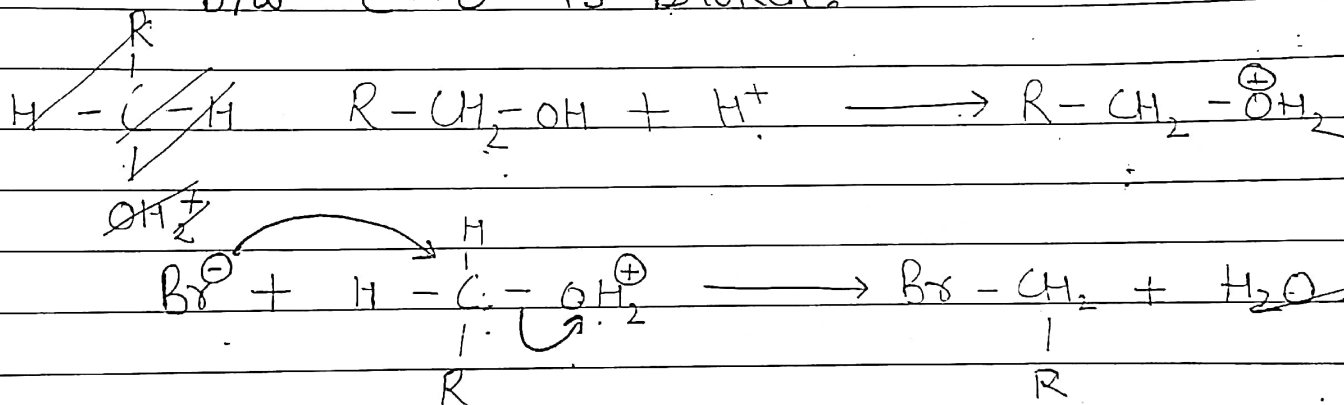 b/w C-O is broken.
R - CH₂ - OH + H⁺ ⟶ R - CH₂ - O⊕H₂
Br⊖ + H - C - OH₂⊕ ⟶ Br - CH₂ + H₂O
H
R
R